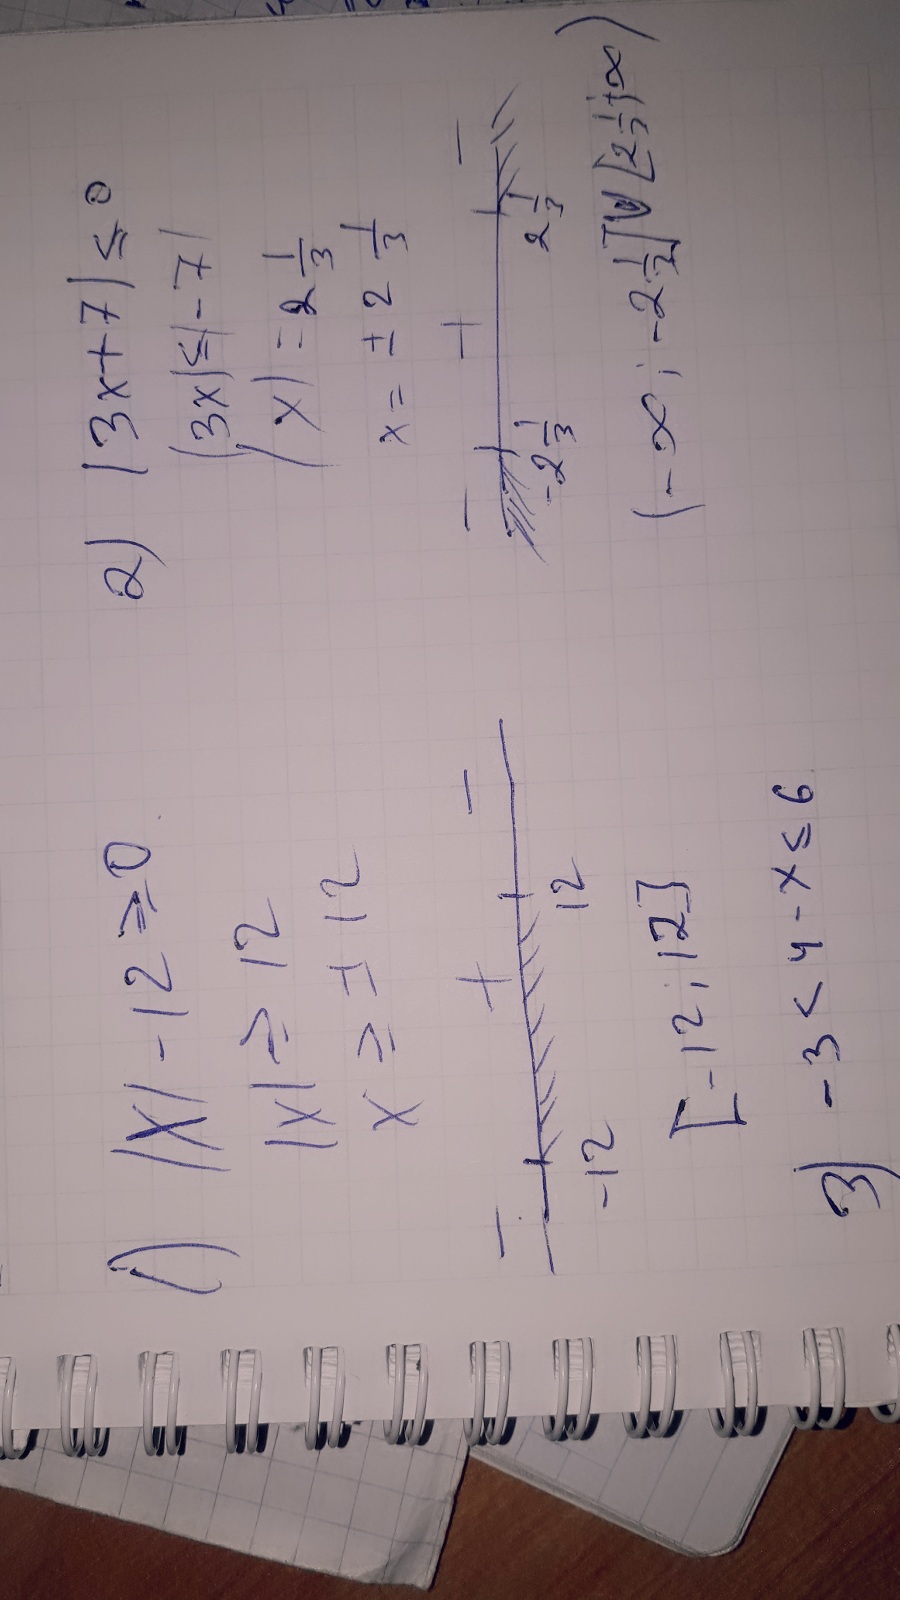 1) |x| - 12 ≥ 0
|x| ≥ 12
x ≥ ± 12
- + -
-12 12
[-12; 12]
2) |3x+7| ≤ 0
|3x| ≤ |-7|
|x| = 2 1/3
x = ± 2 1/3
- + -
-2 1/3 2 1/3
(-∞; -2 1/3] ∪ [2 1/3; +∞)
3) -3 < 4 - x ≤ 6